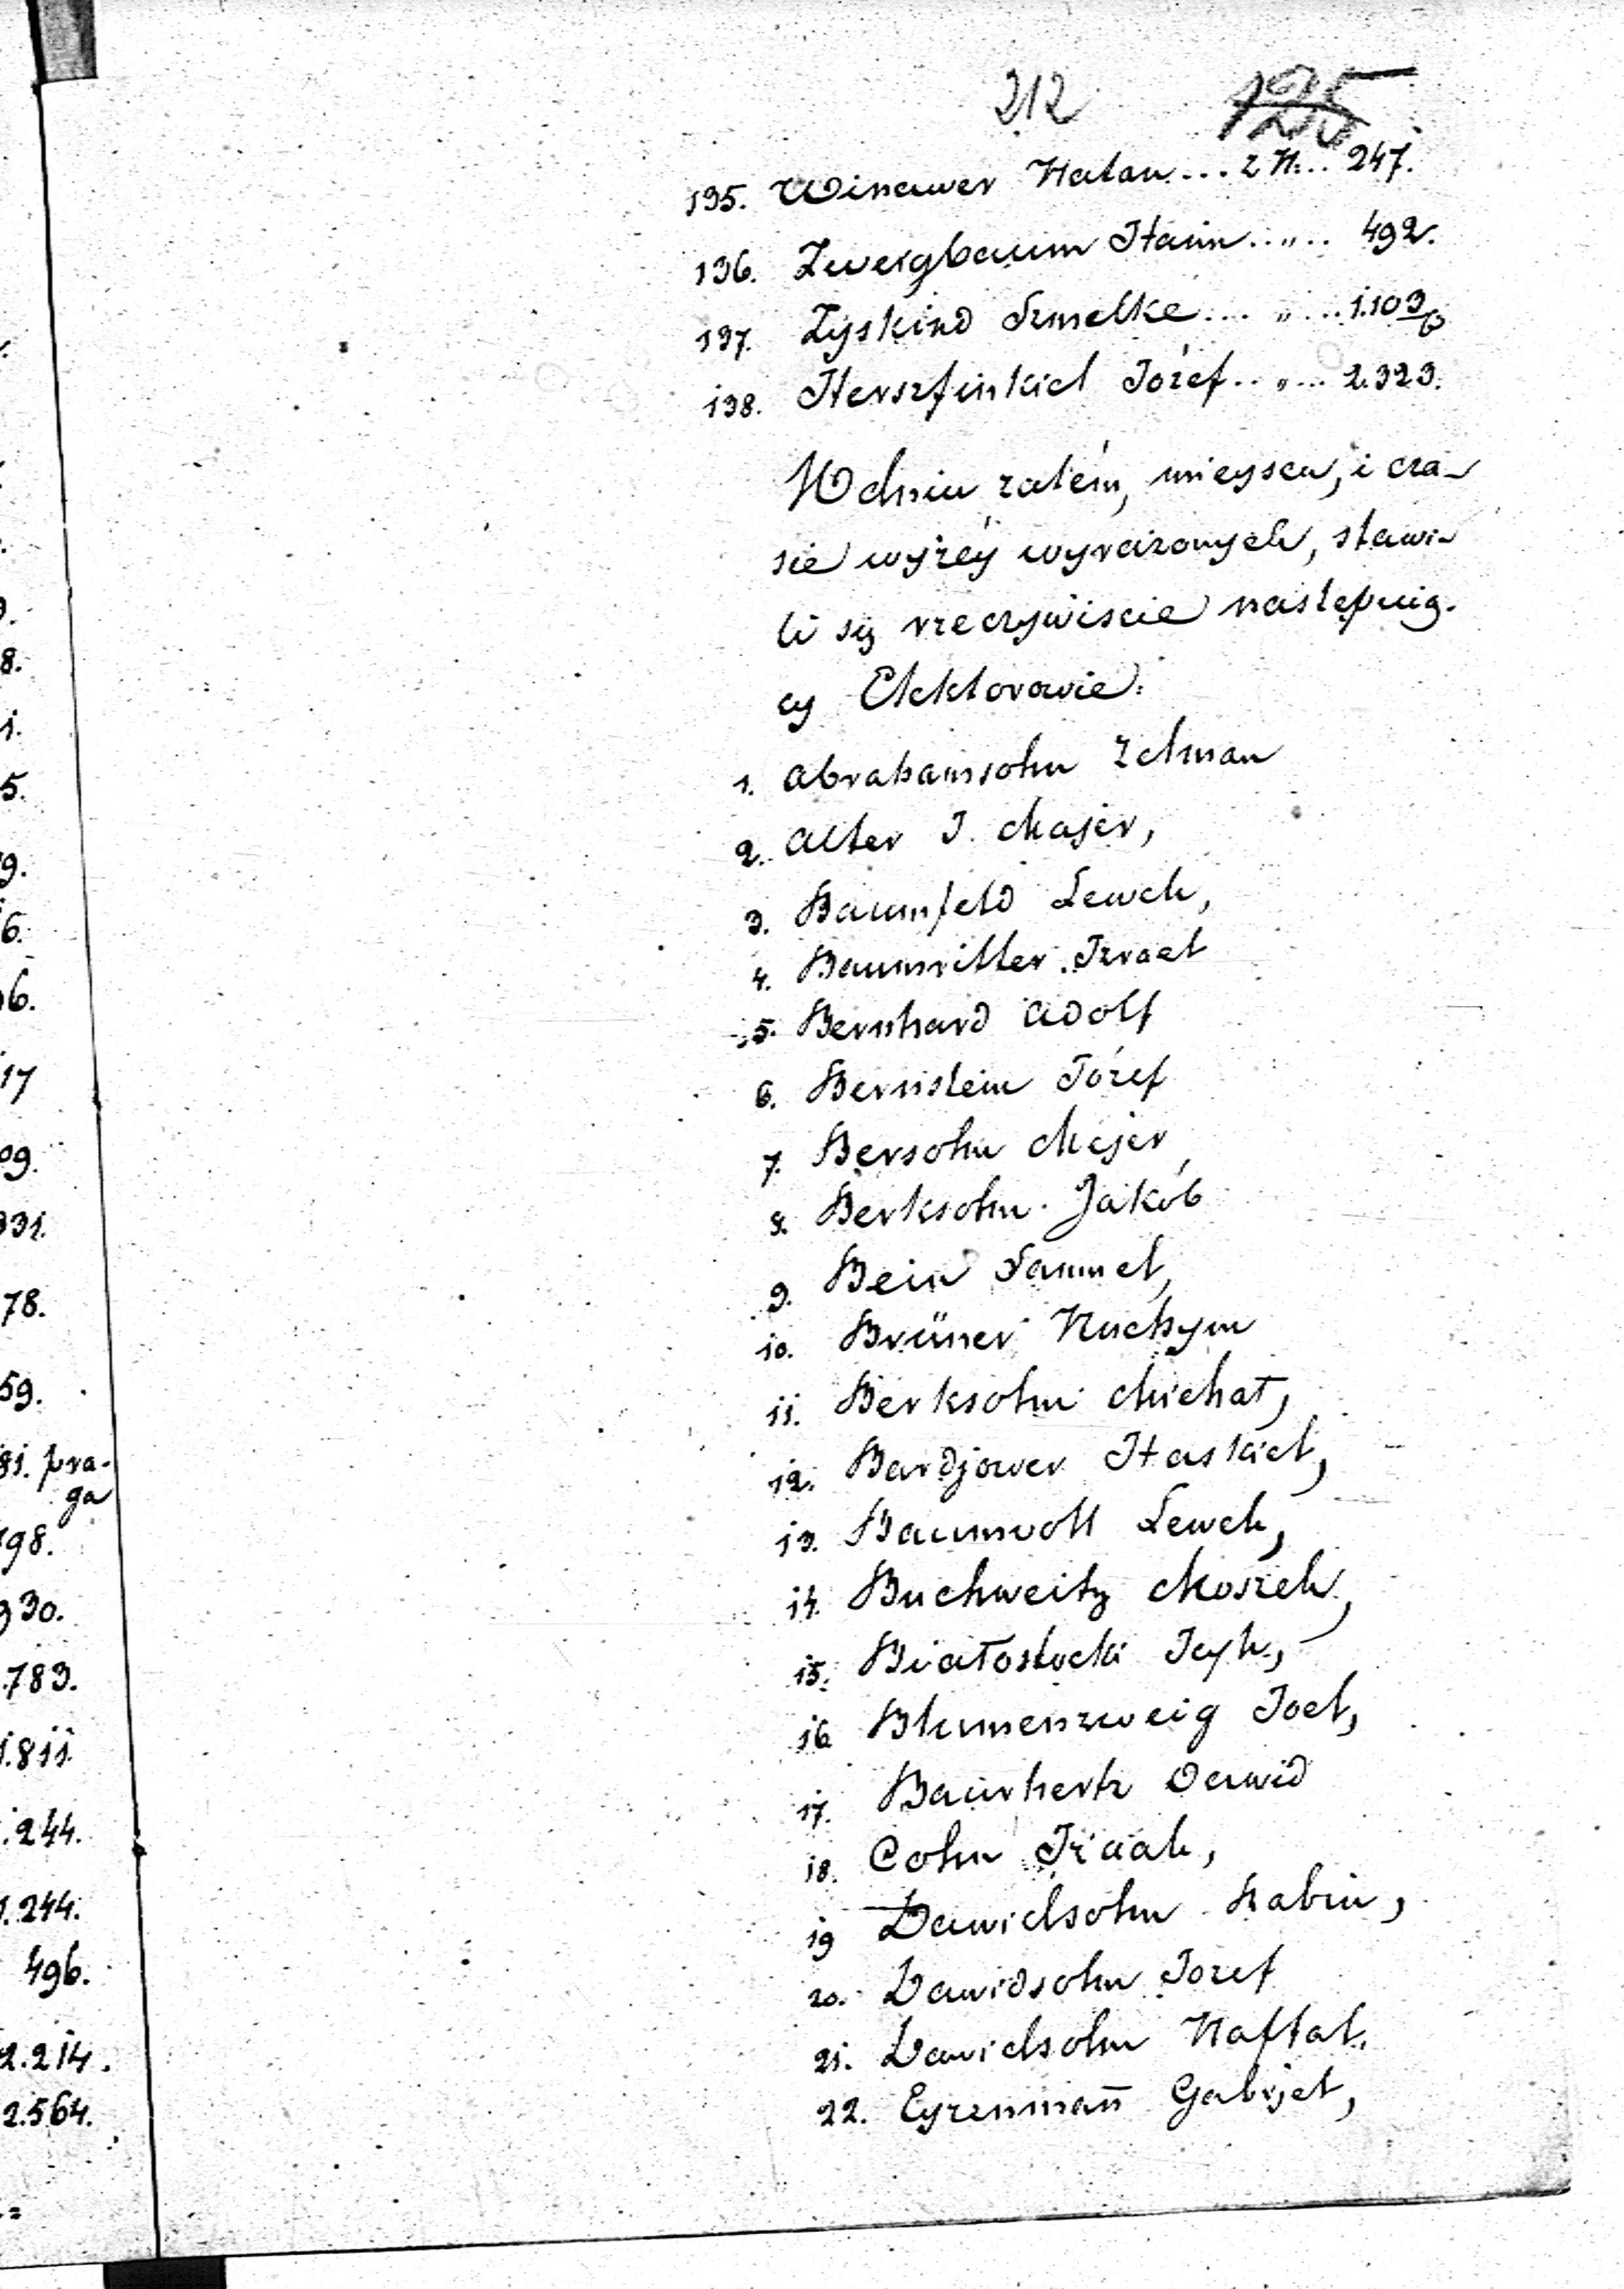 212 125
135. Winawer Natan ... z N... 247.
136. Zweigbaum Haim .. „ .. 492.
137. Zyskind Szmelke ... „ ... 1.103/b
138. Herszfinkiel Józef .. „ ... 2.323.
W dniu zatém, mieyscu, i cza-
sie wyżéy wyrażonych, stawi-
li się rzeczywiscie następuią-
cy Elektorowie:
1. Abrahamsohn Zelman
2. Alter J. Majer,
3. Baumfeld Lewek,
4. Baumritter Izrael
5. Bernhard Adolf
6. Bernstein Józef
7. Bersohn Mejer,
8. Berksohn Jakób
9. Bein Samuel,
10. Brüner Nuchym
11. Berksohn Michał,
12. Bardjower Haskiel,
13. Baumwoll Lewek,
14. Buchweitz Moszek,
15. Białostocki Icyk,
16. Blumenzweig Joel,
17. Baurhertz Dawid
18. Cohn Izaak,
19 Dawidsohn Rabin,
20. Dawidsohn Józef
21. Dawidsohn Naftal,
22. Eyzenman̄ Gabrjel,
8.
1.
5.
9.
6.
96.
17
09.
331.
78.
59.
81. pra-
ga
98.
330.
783.
1.811
.244.
1.244.
496.
2.214.
2.564.